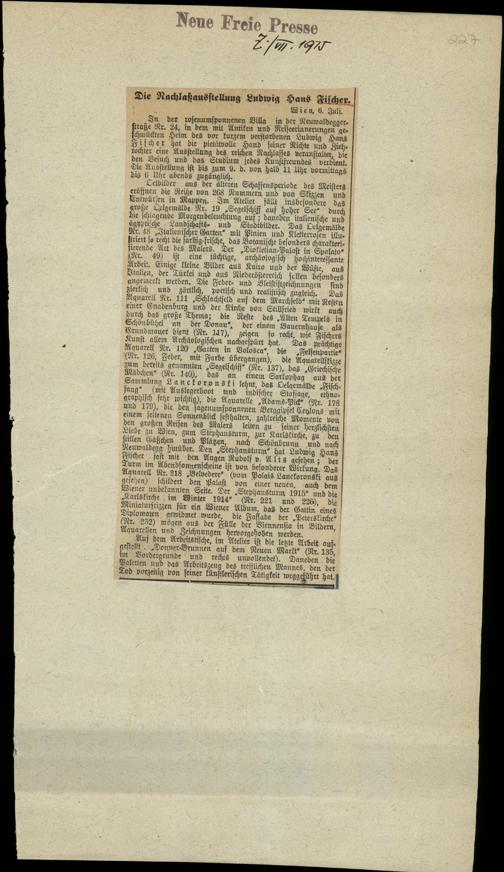 Neue Freie Presse
7./VII. 1915
227
Die Nachlaßausstellung Ludwig Hans Fischer.
Wien, 6. Juli.
In der rosenumsponnenen Villa in der Neuwaldegger-
straße Nr. 24, in dem mit Antiken und Reiseerinnerungen ge-
schmückten Heim des vor kurzem verstorbenen Ludwig Hans
Fischer hat die pietätvolle Hand seiner Nichte und Zieh-
tochter eine Ausstellung des reichen Nachlasses veranstaltet, die
den Besuch und das Studium jedes Kunstfreundes verdient.
Die Ausstellung ist bis zum 9. d. von halb 11 Uhr vormittags
bis 6 Uhr abends zugänglich.
Oelbilder aus der älteren Schaffensperiode des Meisters
eröffnen die Reihe von 268 Nummern und von Skizzen und
Entwürfen in Mappen. Im Atelier fällt insbesondere das
große Oelgemälde Nr. 19 „Segelschiff auf hoher See" durch
die schlagende Morgenbeleuchtung auf; daneben italienische und
ägyptische Landschafts- und Stadtbilder. Das Oelgemälde
Nr. 48 „Italienischer Garten" mit Pinien und Kletterrosen illu-
striert so recht die farbig-frische, das Botanische besonders charakteri-
sierende Art des Malers. Der „Diokletian-Palast in Spalato"
(Nr. 49) ist eine tüchtige, archäologisch hochinteressante
Arbeit. Einige kleine Bilder aus Kairo und der Wüste, aus
Italien, der Türkei und aus Niederösterreich sollen besonders
angemerkt werden. Die Feder- und Bleistiftzeichnungen sind
zierlich und zärtlich, poetisch und realistisch zugleich. Das
Aquarell Nr. 111 „Schlachtfeld auf dem Marchfeld" mit Resten
einer Gnadenburg und der Kirche von Stillfried wirkt auch
durch das große Thema; die Reste des „Alten Tempels in
Schönbühel an der Donau", der einem Bauernhause als
Grundmauer dient (Nr. 117), zeigen so recht, wie Fischers
Kunst allem Archäologischen nachgespürt hat. Das prächtige
Aquarell Nr. 120 „Garten in Volosca", die „Felsenpartie"
(Nr. 126, Feder, mit Farbe übergangen), die Aquarellskizze
zum bereits genannten „Segelschiff" (Nr. 137), das „Griechische
Mädchen" (Nr. 140), das an einem Sarkophag aus der
Sammlung Lanckoronski lehnt, das Oelgemälde „Fisch-
fang" (mit Auslegerboot und indischer Staffage, ethno-
graphisch sehr wichtig), die Aquarelle „Adams-Pick" (Nr. 178
und 179), die den sagenumsponnenen Berggipfel Ceylons mit
einem seltenen Sonnenbild festhalten, zahlreiche Momente von
den großen Reisen des Malers leiten zu seiner herzlichsten
Liebe zu Wien, zum Stephansturm, zur Karlskirche, zu den
stillen Gäßchen und Plätzen, nach Schönbrunn und nach
Neuwaldegg hinüber. Den „Stephansturm" hat Ludwig Hans
Fischer fast mit den Augen Rudolf v. Alts gesehen; der
Turm im Abendsonnenscheine ist von besonderer Wirkung. Das
Aquarell Nr. 218 „Belvedere" (vom Palais Lanckoronski aus
gesehen) schildert den Palast von einer neuen, auch dem
Wiener unbekannten Seite. Der „Stephansturm 1915" und die
„Karlskirche im Winter 1914" (Nr. 221 und 226), die
Miniaturskizzen für ein Wiener Album, das der Gattin eines
Diplomaten gewidmet wurde, die Fassade der „Peterskirche"
(Nr. 252) mögen aus der Fülle der Viennensia in Bildern,
Aquarellen und Zeichnungen hervorgehoben werden.
Auf dem Arbeitstische, im Atelier ist die letzte Arbeit auf-
gestellt. „Donner-Brunnen auf dem Neuen Markt" (Nr. 135,
im Vordergrunde und rechts unvollendet). Daneben die
Paletten und das Arbeitszeug des trefflichen Mannes, den der
Tod vorzeitig von seiner künstlerischen Tätigkeit weggeführt hat.